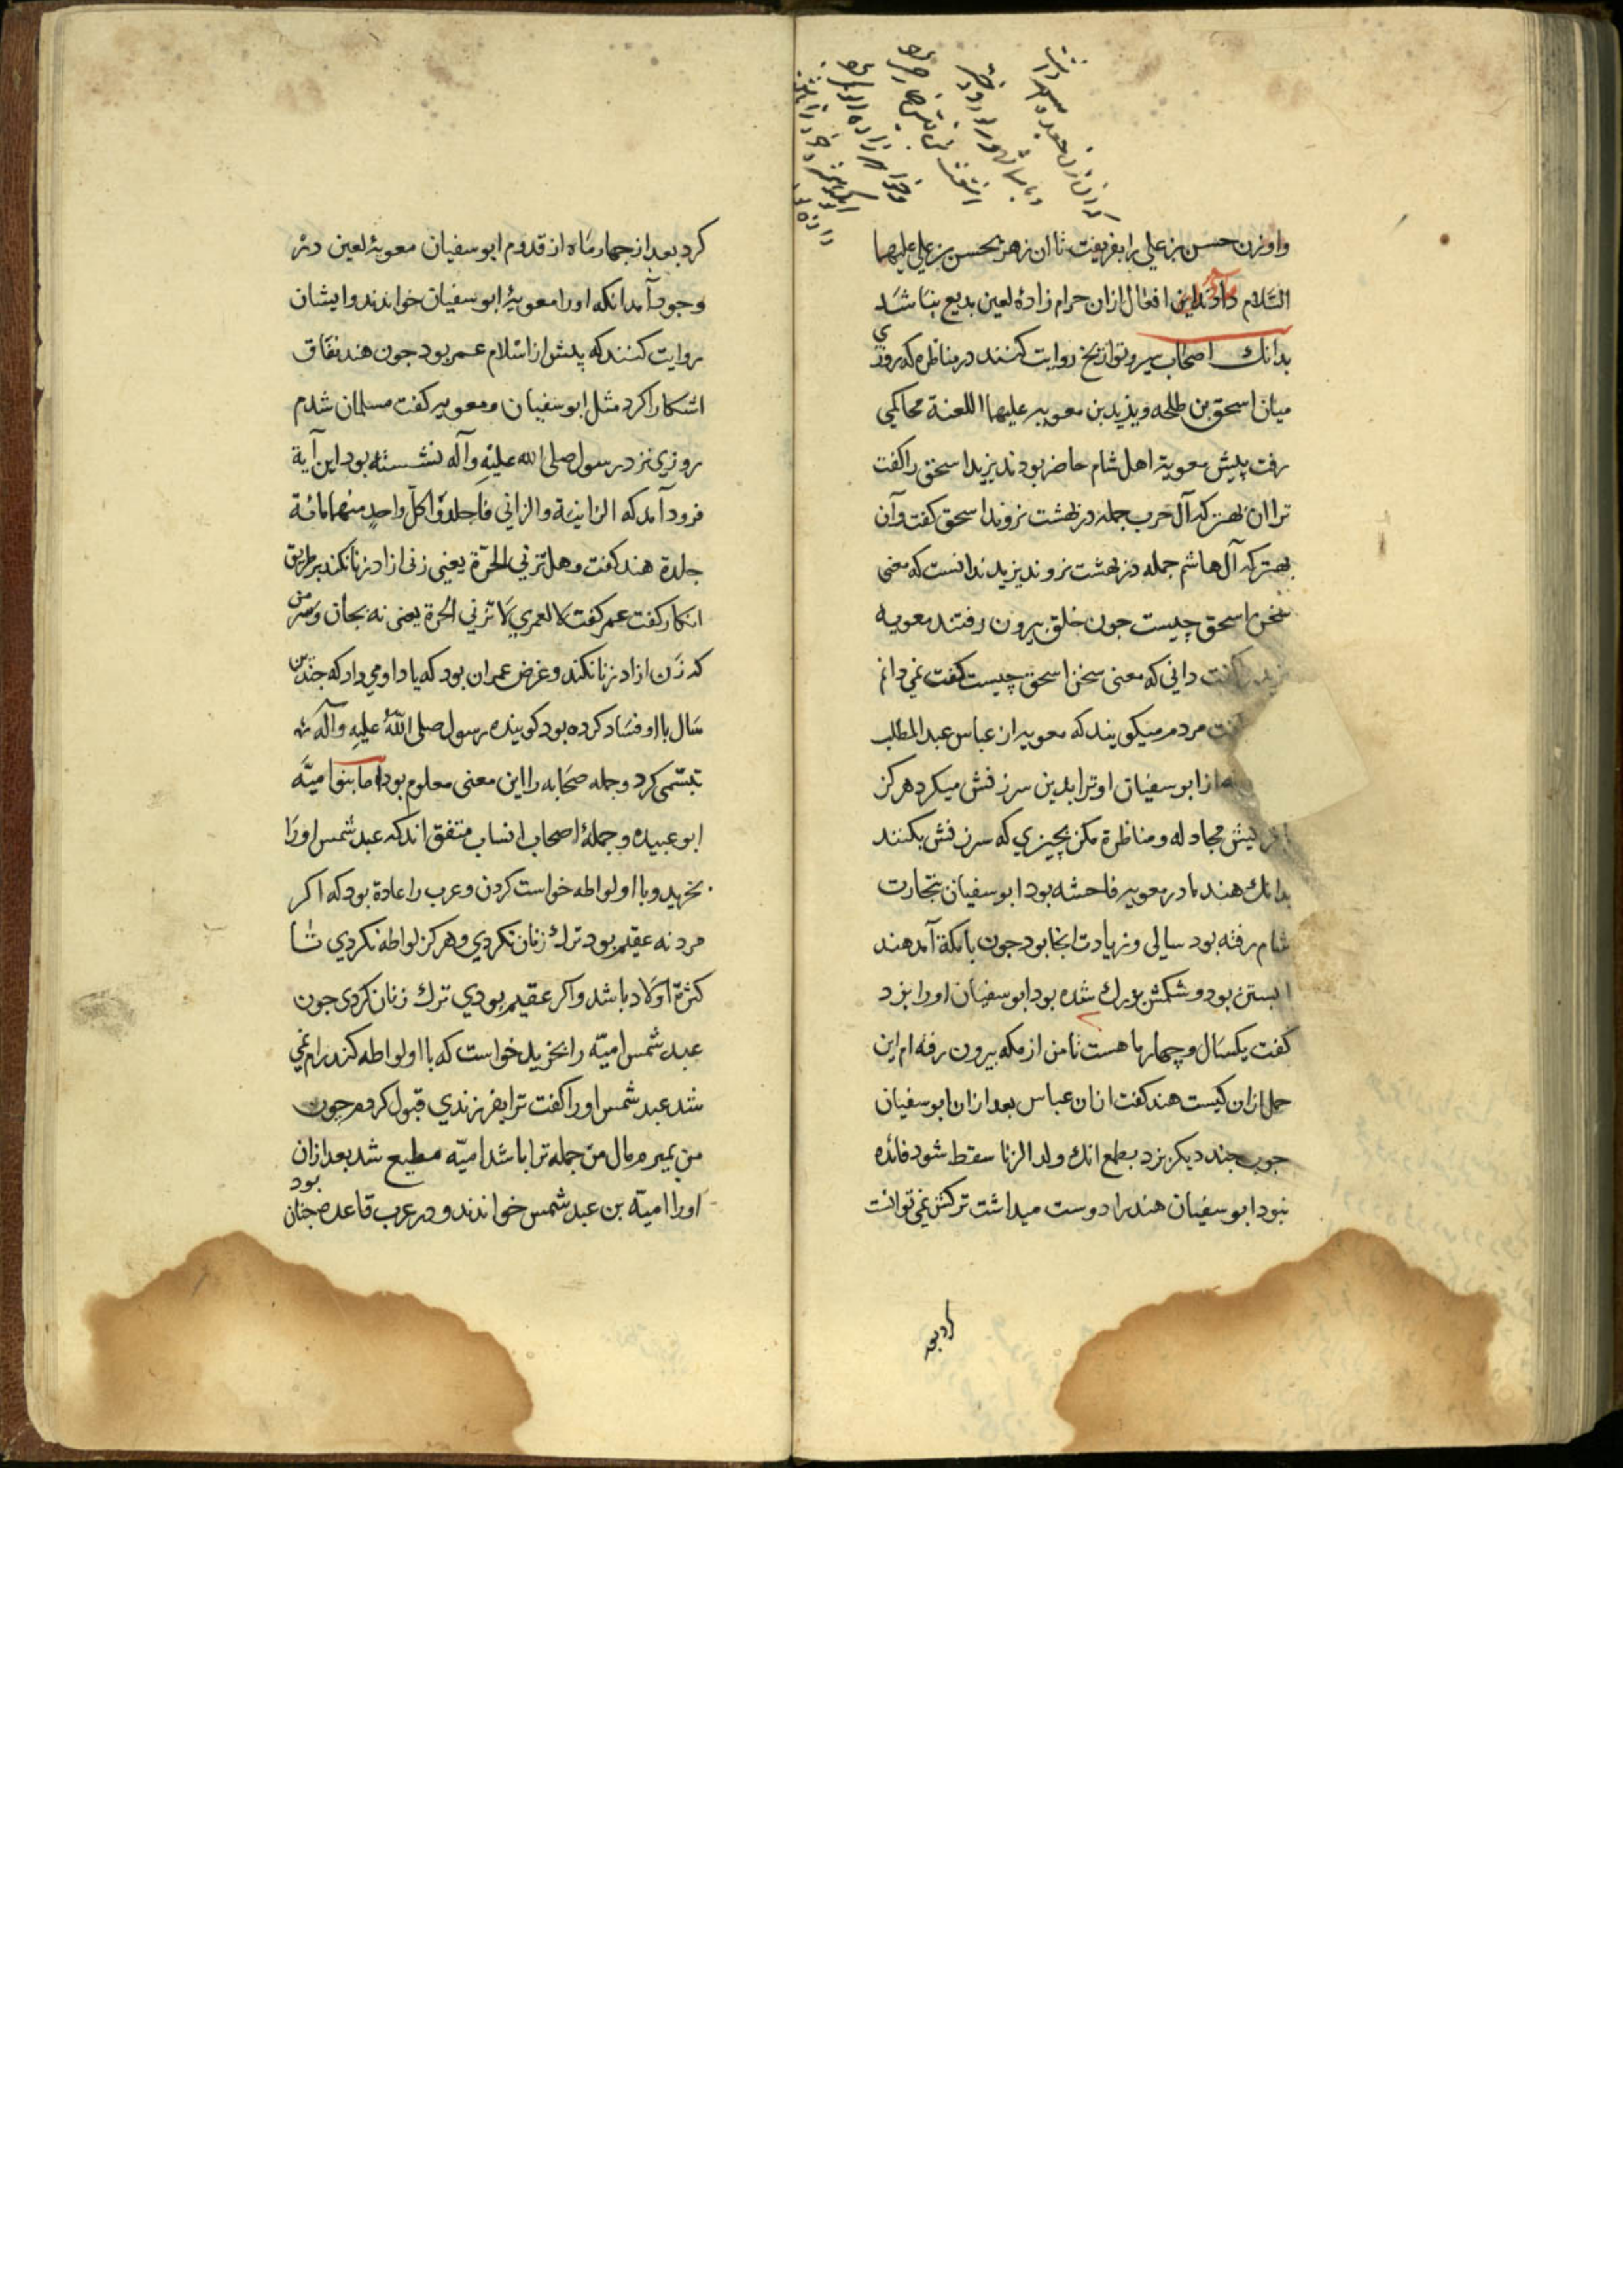 واو زن حسن بن علی را بفریفت تا ان زهر بحسن بن علی علیهما
السّلام داد این افعال ازان حرام زادهٔ لعین بدیع بناشد
بدانك اصحاب سیر و تواریخ روایت کنند در مناظره که روزی
میان اسحق بن طلحه ویزید بن معویه علیهما اللعنة محاکمی
رفت پیش معویه اهل شام حاضر بودند یزید اسحق را کفت
ترا ان بهتر که آل حرب جمله در بهشت نروند اسحق کفت وآن
بهتر که آل هاشم جمله در بهشت نروند یزید ندانست که معنی
سخن اسحق چیست جون خلق بیرون رفتند معویه
کفت دانی که معنی سخن اسحق چیست کفت نمی دانم
کفت مردم میکویند که معویه از عباس عبد المطلب
از ابو سفیان او ترا بدین سرزنش میکرد هرکز
مجادله و مناظرة مکن بچیزی که سرزنش بکنند
بدانك هند مادر معویه فاحشه بود ابو سفیان بتجارت
شام رفته بود سالی و زیادت انجا بود جون با مکة آمد هند
ابستن بود و شکمش بزرك شده بود ابو سفیان اورا بزد
کفت یکسال و چهار ماهست تا من از مکه بیرون رفته ام این
حمل ازان کیست هند کفت ازان عباس بعد ازان ابو سفیان
جوب جند دیکر بزد بطمع انك ولد الزنا سقط شود فائده
نبود ابو سفیان هند را دوست میداشت ترکش نمی توانست
کرد بعد
کرد بعد از جهار ماه از قدوم ابو سفیان معویهٔ لعین در
وجود آمد انکه اورا معویهٔ ابو سفیان خواندند وایشان
روایت کنند که پیش از اسلام عمر بود جون هند نفاق
اشکارا کرد مثل ابو سفیان و معویه کفت مسلمان شدم
روزی نزد رسول صلی الله علیه وآله نشسته بود این آیة
فرود آمد که الزانیة والزانی فاجلدوا کلّ واحدٍ منهما مائة
جلدة هند کفت وهل تزنی الحرّة یعنی زنی ازاد زنا نکند بر طریق
انکار کفت عمر کفت لا لعمری لا تزنی الحرة یعنی نه بجان و سر من
که زن ازاد زنا نکند و غرض عمر ان بود که یاد او می داد که جندین
سال با او فساد کرده بود کویند رسول صلی اللّه علیه وآله
تبسّمی کرد و جمله صحابه را این معنی معلوم بود اما بنو امیّه
ابو عبیده و جملهٔ اصحاب انساب متفق اند که عبد شمس اورا
بخرید و با او لواطه خواست کردن و عرب را عادة بود که اکر
مرد نه عقیم بود ترك زنان نکردی و هرکز لواطه نکردی تا
کثرة اولاد باشد و اکر عقیم بودی ترك زنان کردی جون
عبد شمس امیّه را بخرید خواست که با او لواطه کند رام نمی
شد عبد شمس اورا کفت ترا بفرزندی قبول کردم جون
من بمیرم مال من جمله ترا باشد امیّه مطیع شد بعد ازان
اورا امیّة بن عبد شمس خواندند و در عرب قاعده جنان بود